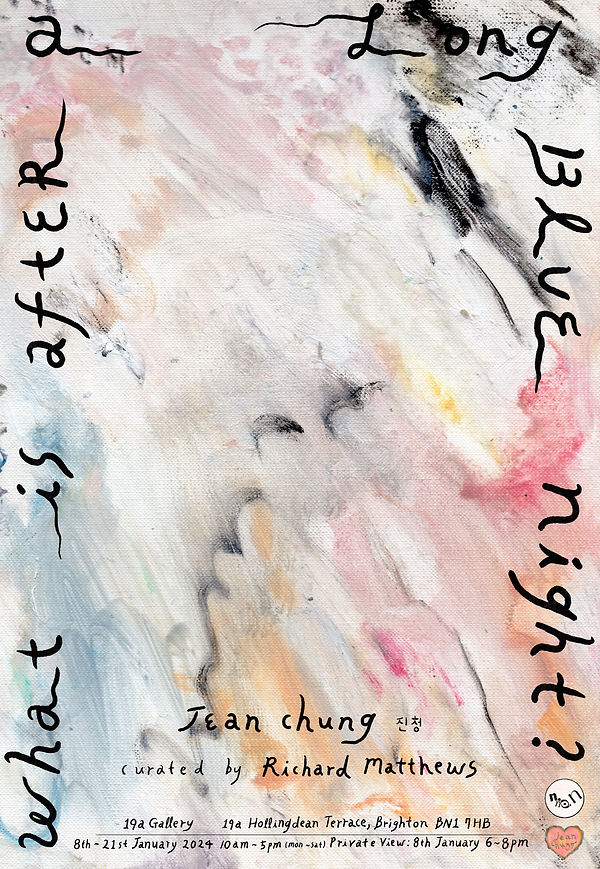 what is aftER a Long BlvE night?
JEan chung 진청
curated by Richard Matthews
19a Gallery 19a Hollingdean Terrace, Brighton BN1 7HB
8th - 21st January 2024 10am ~ 5pm (mon ~ sat) Private View: 8th January 6~8pm
Jean
chung